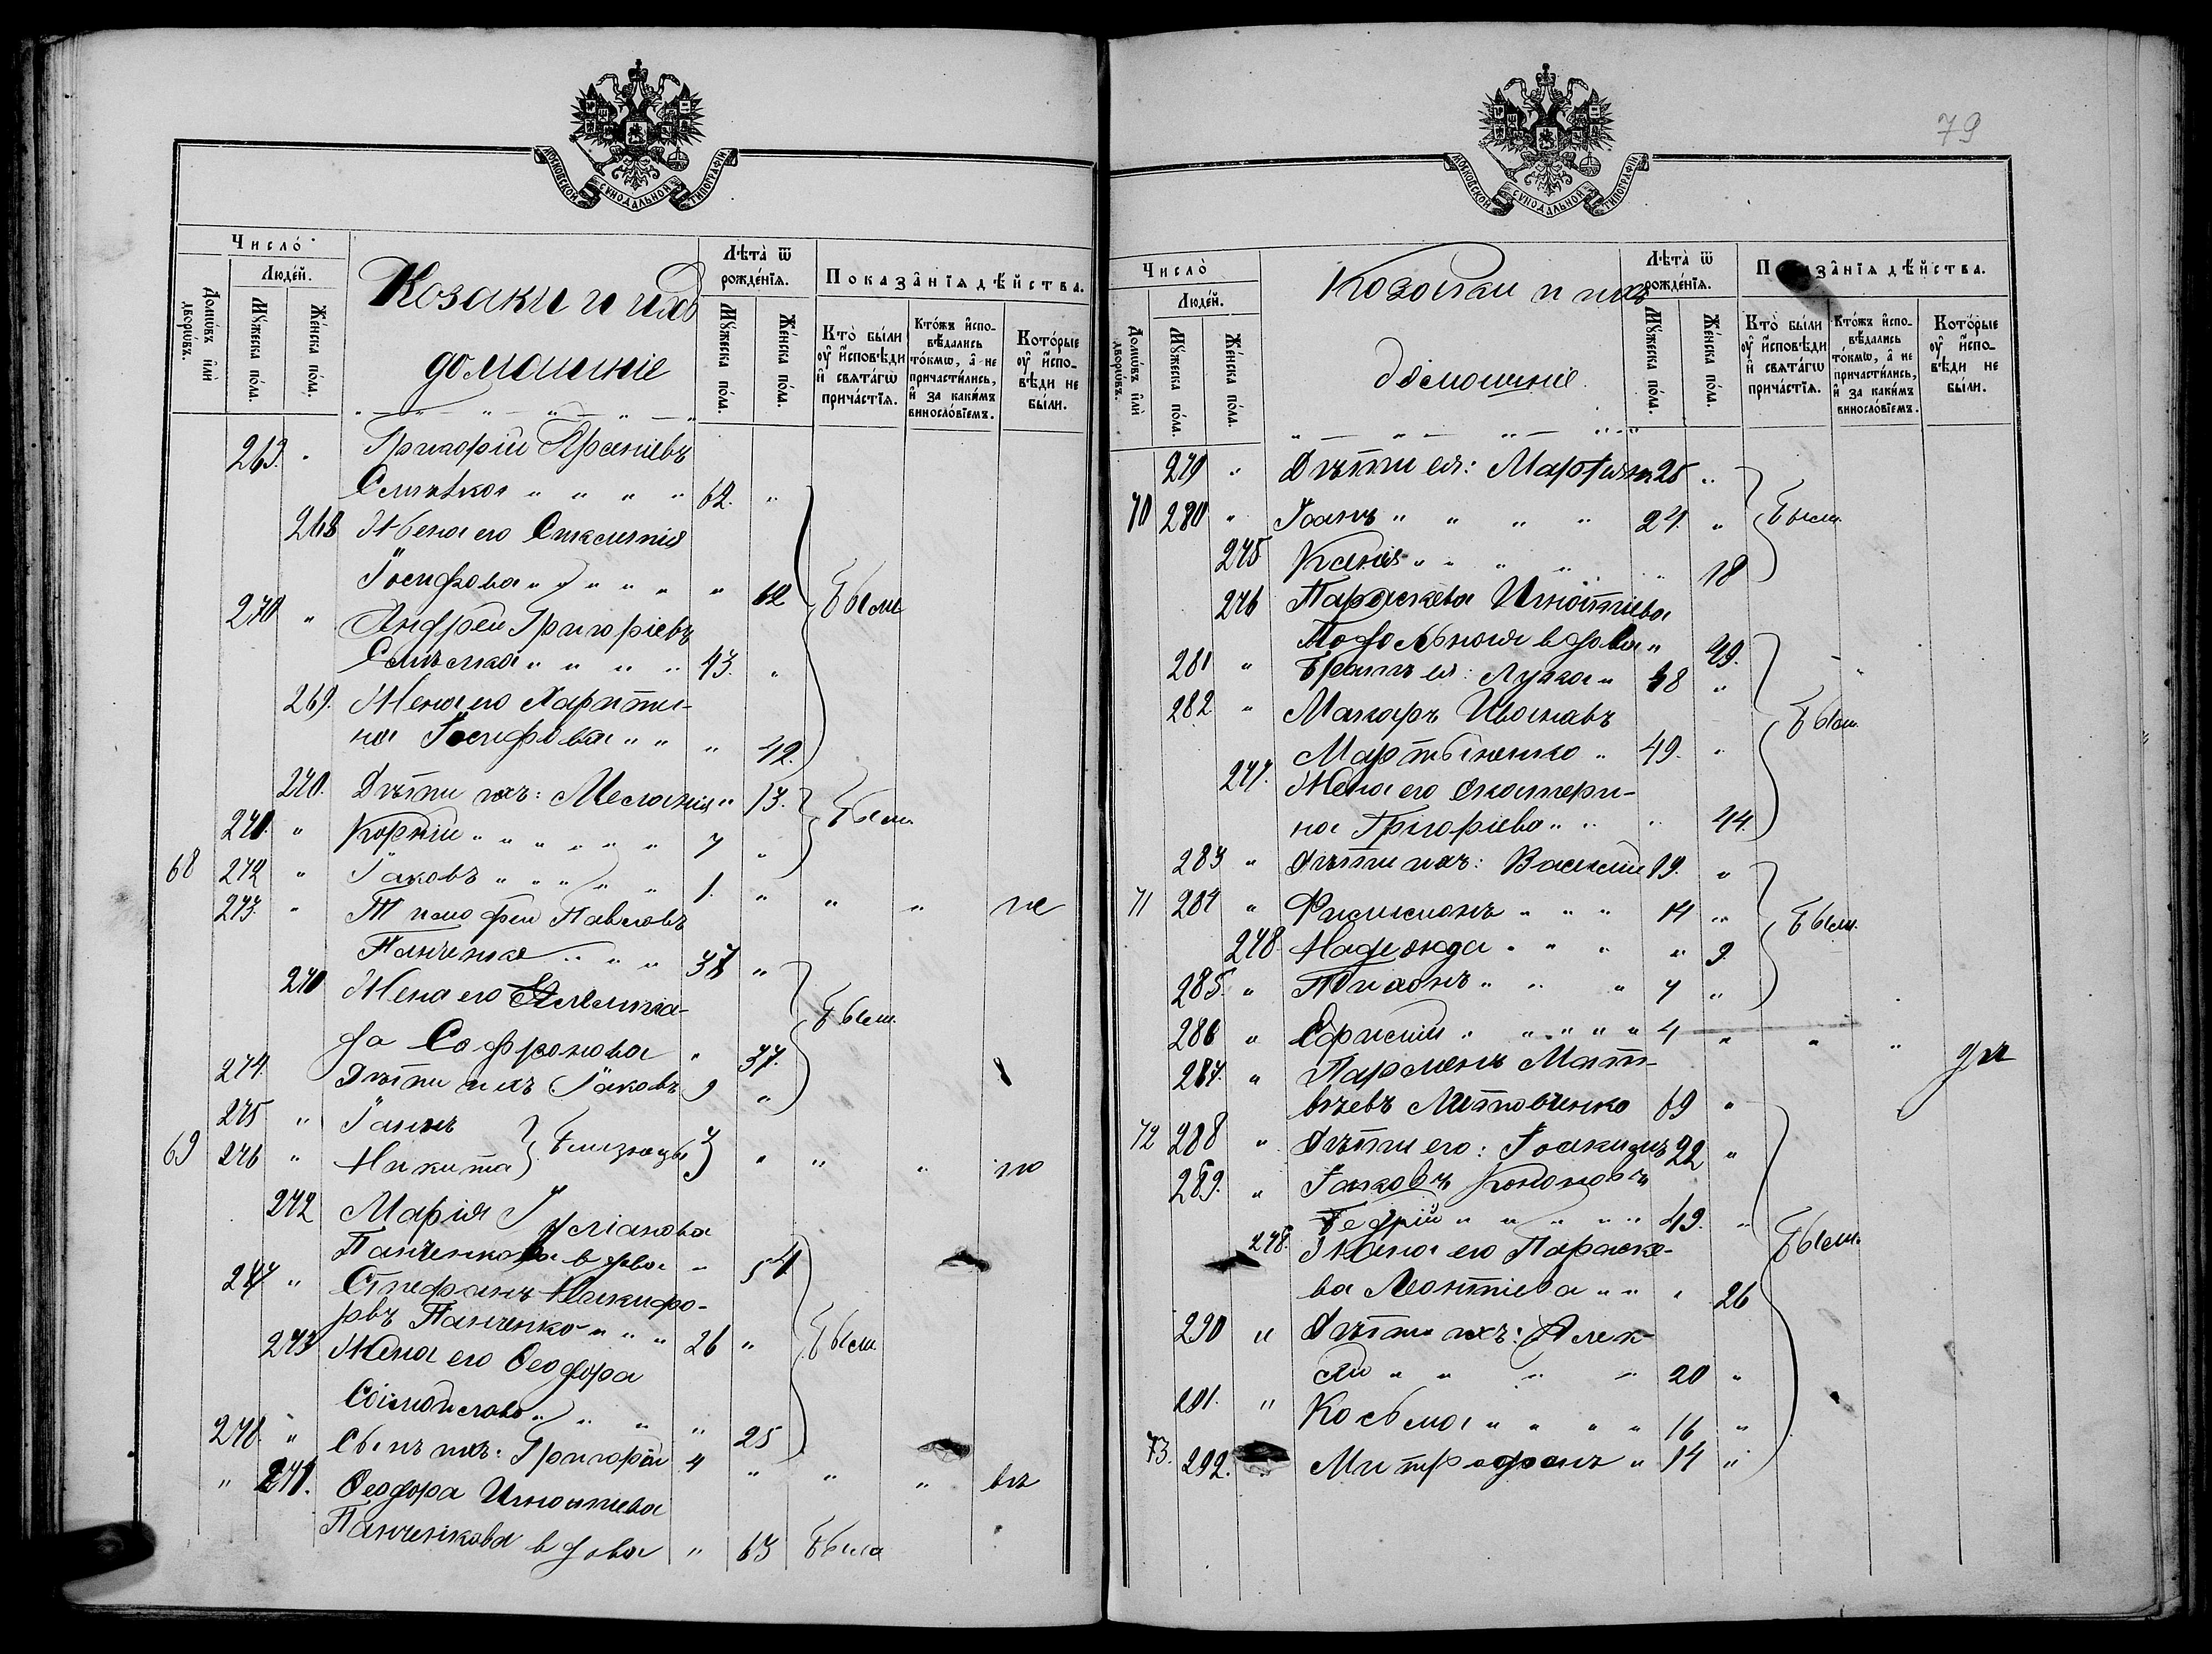 МОСКОВСКОЙ СѴНОДАЛЬНОЙ ТИПОГРАФІИ
Число̀
Людей.
Домѡвъ или дворѡвъ.
Мꙋжеска пола.
Женска пола.
Козаки и ихъ
домашніе
Лѣта̀ ѿ рожденїя.
Мꙋжеска пола.
Женска пола.
Показанїя дѣйства.
Кто̀ были ᲂу҆ исповѣди и свята́гѡ причастїя.
Кто́жъ исповѣдались то́кмѡ, а не причастились, и за какимъ винословїемъ.
Которые ᲂу҆ исповѣди не были.
269. " Григорій
62. "
268 Жена его
Іосифова " " " " " 62 Были
270 " Андрей Григоріевъ
" " " " 43. "
269. Жена его Харити-
на Іосифова " " " 42.
270. Дѣти ихъ: Меланія " 13. Были
271. " Корній " " " " " " 7 "
68 272 " Іаковъ " " " " " 1. " " " не
273. " Тимофей Павловъ
Панченко " " " 38 "
270 Жена его
да Софронова " 37. Были
274. Дѣти ихъ Іаковъ 9 "
275 " Іоаннъ
69 276 " Никита } близнецы } 3 " " " по
272 Марія Іуліанова
Панченкова вдова " 54
277 " Стефанъ Никифо-
ровъ Панченко " " " 26 " Были
273 Жена его Ѳеодора
" " " " 25
278. " Сынъ ихъ: Григорій 4 " " " въ
" 271. Ѳеодора Игнатіева
Панченкова вдова " 63 Была
79
МОСКОВСКОЙ СѴНОДАЛЬНОЙ ТИПОГРАФІИ
Число̀
Людей.
Домѡвъ или дворѡвъ.
Мꙋжеска пола.
Женска пола.
Козаки и ихъ
домашніе.
Лѣта̀ ѿ рожденїя.
Мꙋжеска пола.
Женска пола.
Показанїя дѣйства.
Кто̀ были ᲂу҆ исповѣди и свята́гѡ причастїя.
Кто́жъ исповѣдались то́кмѡ, а не причастились, и за какимъ винословїемъ.
Которые ᲂу҆ исповѣди не были.
279 " Дѣти ея: 25 "
70 280 " Іоанъ " " " " 21. " Были
275 Ксенія " " " " " 18
276 Параскева Игнатіева
вдова " 49.
281 " Братъ ея: Лука " 38 "
282 " Макаръ Ивановъ Были
Мартыненко " 49. "
277. Жена его Екатери-
на Григоріева " " " 44.
283 " Дѣти ихъ: Василій 19. "
71 284 " Филимонъ " " " 14 " Были
278. Надежда " " " " 9
285. " " " " 7 "
286 " " " " " " 4 " " "
287. " Парменъ Мат-
вѣевъ Литовченко 69 "
72 288 " Дѣти его: Іоакимъ 22 "
289. " Іаковъ Кононовъ
" " " " " 49. " Были
278. Жена его Параске-
ва Леонтіева " " " 26
290 " Дѣти ихъ: Алек-
сѣй " " " " 20 "
291. " Косьма " " " " 16 "
73. 292. " Митрофанъ " 14 "